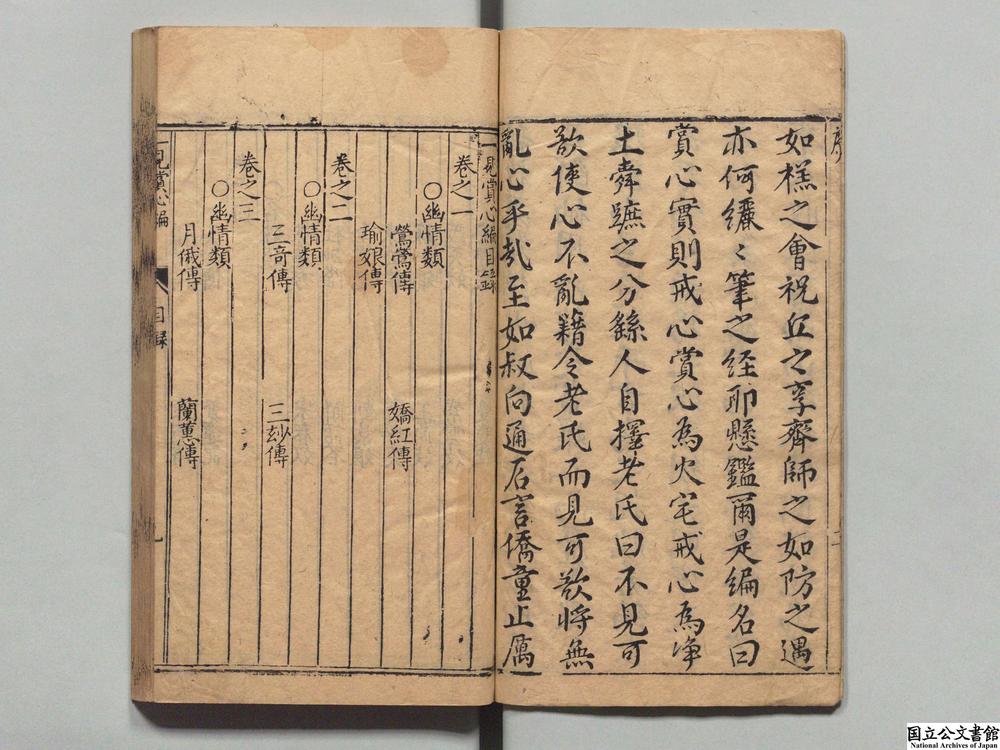 序
如禚之會祝丘之享齊師之如防之遇
亦何纚〻筆之經耶懸鑑爾是編名曰
賞心實則戒心賞心為火宅戒心為凈
土舜蹠之分繇人自擇老氏曰不見可
欲使心不亂籍令老氏而見可欲將無
亂心乎哉至如叔向通后言僑童止厲
一見賞心編目錄
卷之一
○幽情類
鶯鶯傳 嬌紅傳
瑜娘傳
卷之二
○幽情類
三奇傳 三妙傳
卷之三
○幽情類
月俄傳 蘭蕙傳
一見賞心編 目錄
国立公文書館
National Archives of Japan